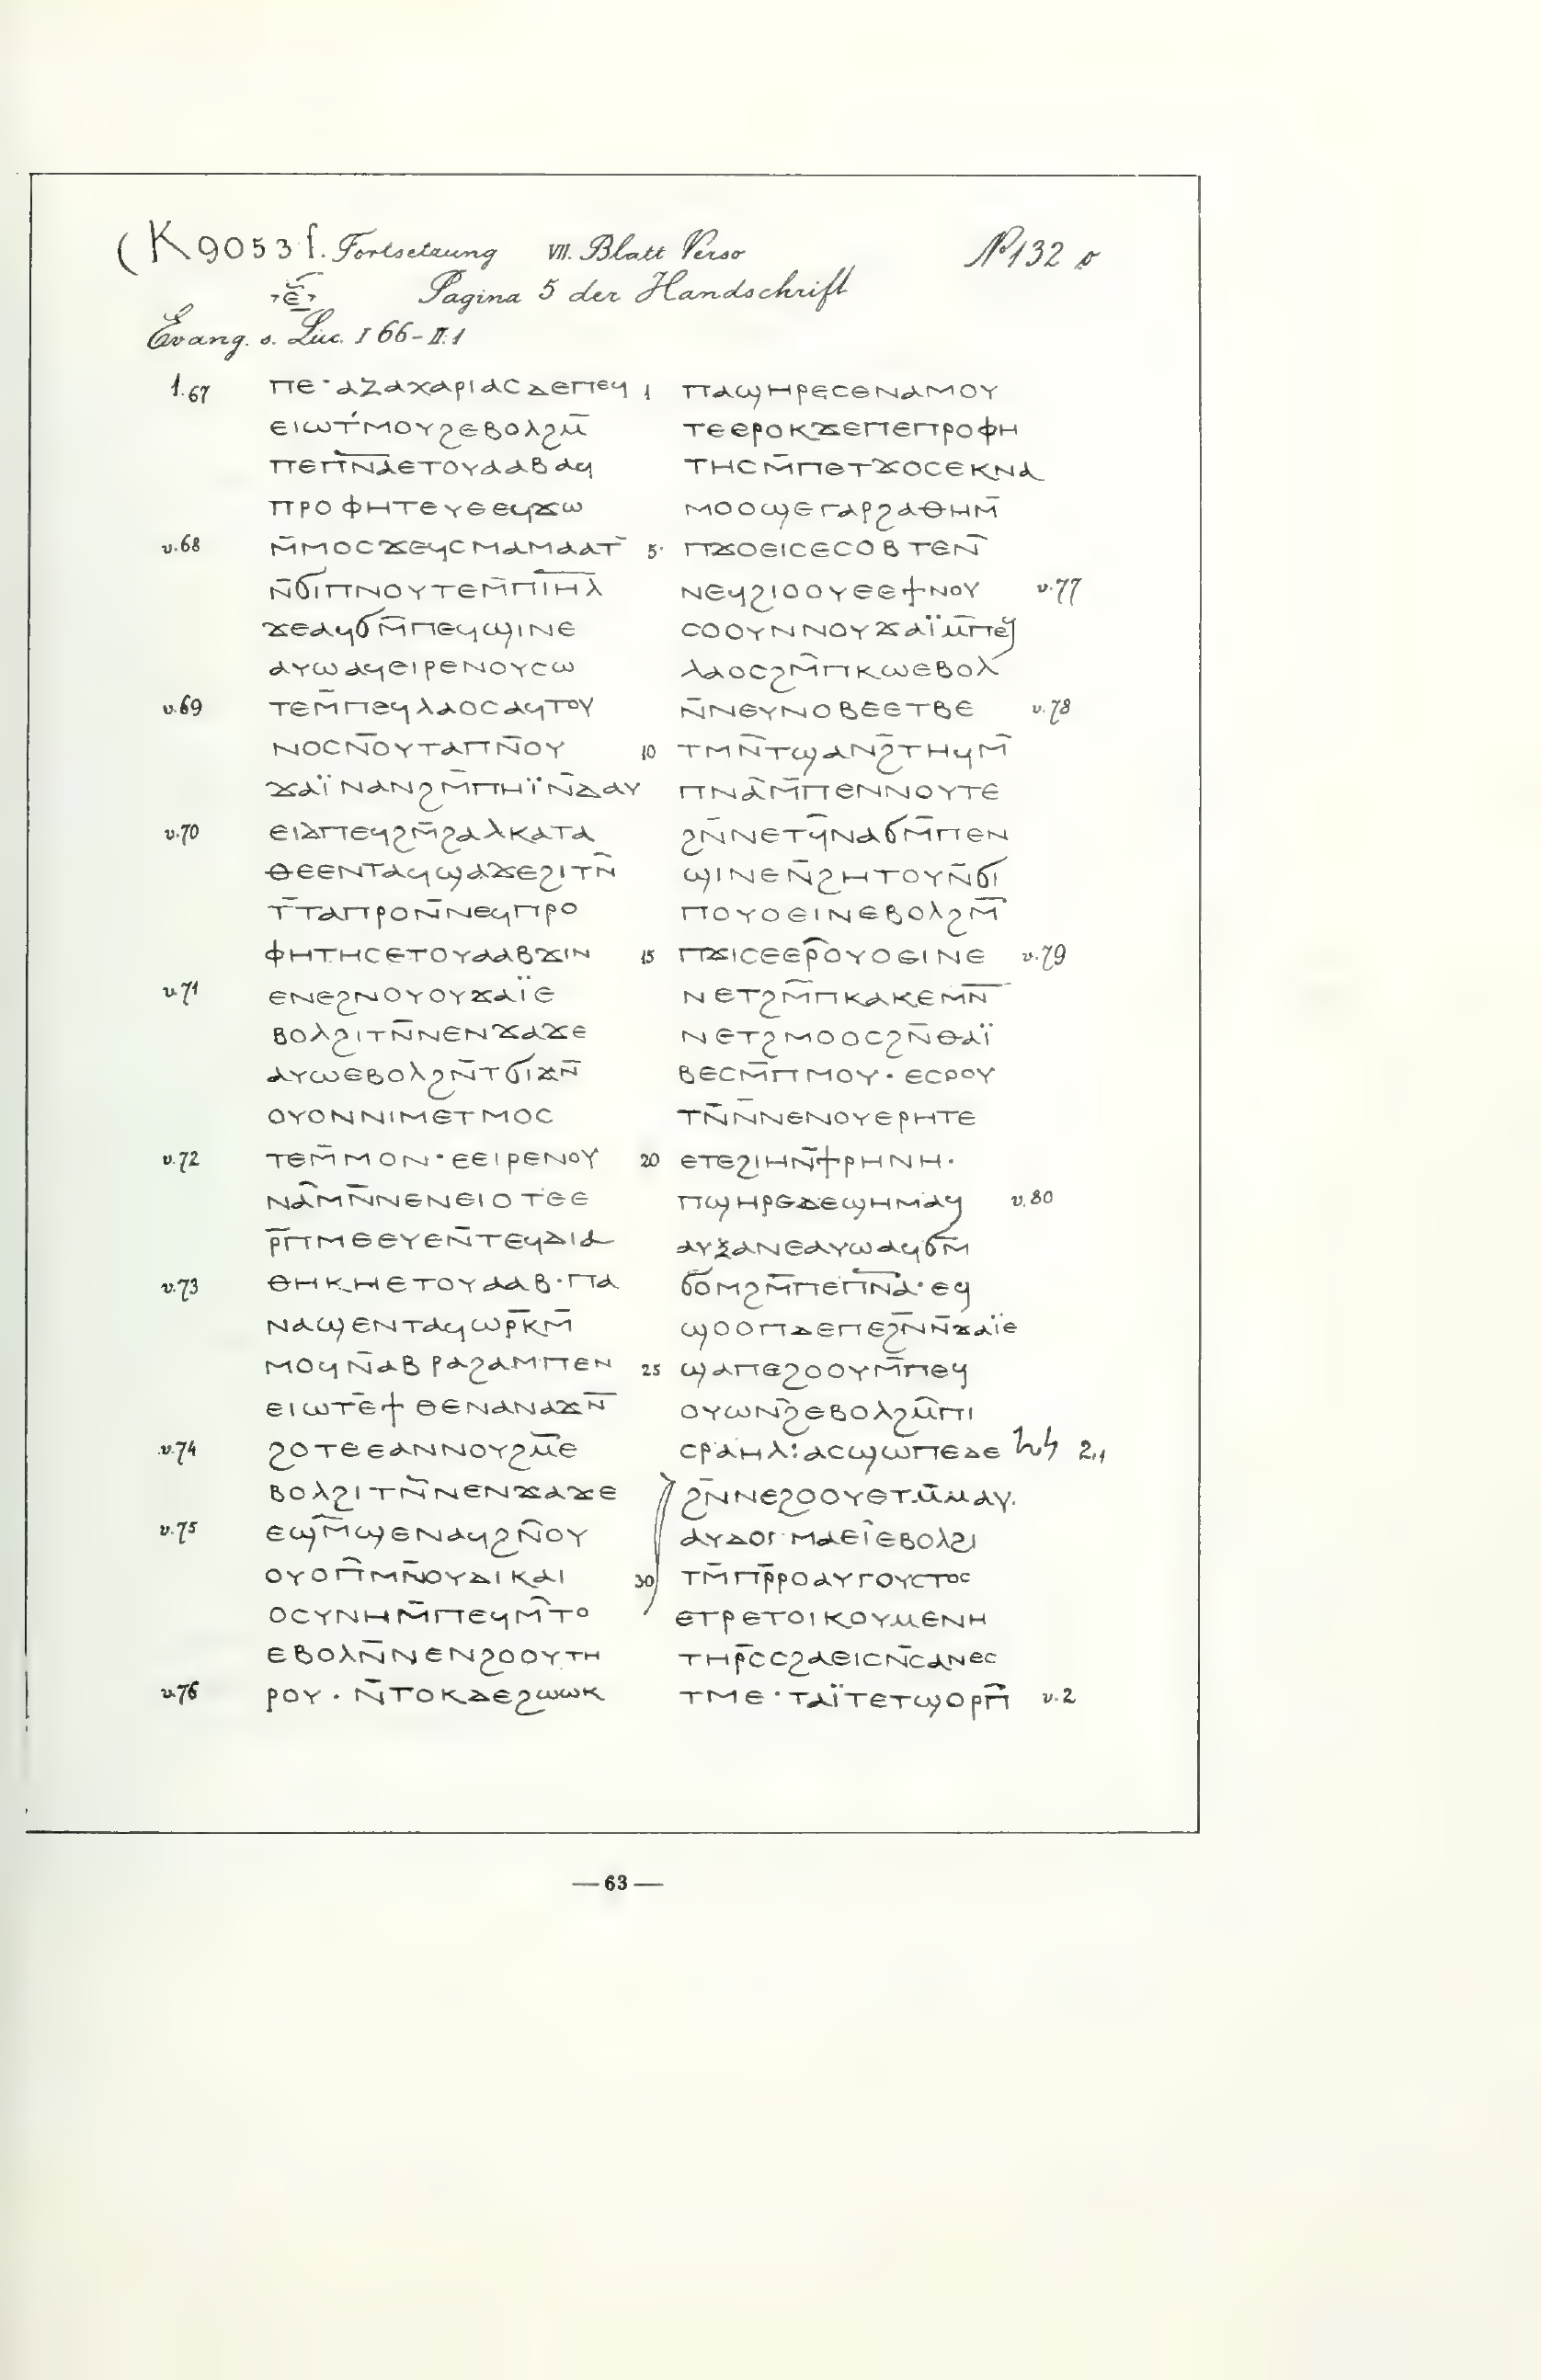 (K 9053 f. Fortsetzung VII. Blatt Verso Nº 132 v
Ⲉ̅ Pagina 5 der Handschrift
Evang. s. Luc. I 66 - II.1
1.67 ⲡⲉ· ⲁⲍⲁⲭⲁⲣⲓⲁⲥⲇⲉⲡⲉϥ
ⲉⲓⲱⲧ́ⲙⲟⲩϩⲉⲃⲟⲗϩⲙ̄
ⲡⲉⲡ̅ⲛ̅ⲁ̅ⲉⲧⲟⲩⲁⲁⲃⲁϥ
ⲡⲣⲟⲫⲏⲧⲉⲩⲉⲉϥϫⲱ
v.68 ⲙ̄ⲙⲟⲥϫⲉϥⲥⲙⲁⲙⲁⲁⲧ̄
ⲛ̄ϭⲓⲡⲛⲟⲩⲧⲉⲙ̄ⲡⲓ̅ⲏ̅ⲗ̅
ϫⲉⲁϥϭⲙ̄ⲡⲉϥϣⲓⲛⲉ
ⲁⲩⲱⲁϥⲉⲓⲣⲉⲛⲟⲩⲥⲱ
v.69 ⲧⲉⲙ̄ⲡⲉϥⲗⲁⲟⲥⲁϥⲧⲟⲩ
ⲛⲟⲥⲛ̄ⲟⲩⲧⲁⲡⲛ̄ⲟⲩ
ϫⲁⲓ̈ⲛⲁⲛϩⲙ̄ⲡⲏⲓ̈ⲛ̄ⲇⲁⲩ
v.70 ⲉⲓⲇⲡⲉϥϩⲙ̄ϩⲁⲗⲕⲁⲧⲁ
ⲑⲉⲉⲛⲧⲁϥϣⲁϫⲉϩⲓⲧⲛ̄
ⲧ̄ⲧⲁⲡⲣⲟⲛ̄ⲛⲉϥⲡⲣⲟ
ⲫⲏⲧⲏⲥⲉⲧⲟⲩⲁⲁⲃϫⲓⲛ
v.71 ⲉⲛⲉϩⲛⲟⲩⲟⲩϫⲁⲓ̈ⲉ
ⲃⲟⲗϩⲓⲧⲛ̄ⲛⲉⲛϫⲁϫⲉ
ⲁⲩⲱⲉⲃⲟⲗϩⲛ̄ⲧϭⲓϫⲛ̄
ⲟⲩⲟⲛⲛⲓⲙⲉⲧⲙⲟⲥ
v.72 ⲧⲉⲙ̄ⲙⲟⲛ· ⲉⲉⲓⲣⲉⲛⲟⲩ
ⲛⲁ̂ⲙⲛ̄ⲛⲉⲛⲉⲓⲟⲧⲉⲉ
ⲣ̄ⲡⲙⲉⲉⲩⲉⲛ̄ⲧⲉϥⲇⲓⲁ
v.73 ⲑⲏⲕⲏⲉⲧⲟⲩⲁⲁⲃ· ⲡⲁ
ⲛⲁϣⲉⲛⲧⲁϥⲱⲣ̄ⲕⲙ̄
ⲙⲟϥⲛ̄ⲁⲃⲣⲁϩⲁⲙⲡⲉⲛ
ⲉⲓⲱⲧⲉ̄ϯⲑⲉⲛⲁⲛⲁϫⲛ̄
v.74 ϩⲟⲧⲉⲉⲁⲛⲛⲟⲩϩⲙ̄ⲉ
ⲃⲟⲗϩⲓⲧⲛ̄ⲛⲉⲛϫⲁϫⲉ
v.75 ⲉϣⲙ̄ϣⲉⲛⲁϥϩⲛ̄ⲟⲩ
ⲟⲩⲟⲡ̂ⲙⲛ̄ⲟⲩⲇⲓⲕⲁⲓ
ⲟⲥⲩⲛⲏⲙ̄ⲡⲉϥⲙ̂ⲧⲟ
ⲉⲃⲟⲗⲛ̄ⲛⲉⲛϩⲟⲟⲩⲧⲏ
v.76 ⲣⲟⲩ· ⲛ̄ⲧⲟⲕⲇⲉϩⲱⲱⲕ
1 ⲡⲁϣⲏⲣⲉⲥⲉⲛⲁⲙⲟⲩ
ⲧⲉⲉⲣⲟⲕϫⲉⲡⲉⲡⲣⲟⲫⲏ
ⲧⲏⲥⲙ̄ⲡⲉⲧϫⲟⲥⲉⲕⲛⲁ
ⲙⲟⲟϣⲉⲅⲁⲣϩⲁⲑⲏⲙ̄
5· ⲡϫⲟⲉⲓⲥⲉⲥⲟⲃⲧⲉⲛ̄
ⲛⲉϥϩⲓⲟⲟⲩⲉⲉϯⲛⲟⲩ v.77
ⲥⲟⲟⲩⲛⲛⲟⲩϫⲁⲓ̈ⲙ̄ⲡⲉϥ
ⲗⲁⲟⲥϩⲙ̄ⲡⲕⲱⲉⲃⲟⲗ
ⲛ̄ⲛⲉⲩⲛⲟⲃⲉ̄ⲉⲧⲃⲉ v.78
10 ⲧⲙⲛ̄ⲧϣⲁⲛϩ̄ⲧⲏϥⲙ̄
ⲡⲛⲁ̂ⲙ̄ⲡⲉⲛⲛⲟⲩⲧⲉ
ϩⲛ̄ⲛⲉⲧϥ̄ⲛⲁϭⲙ̄ⲡⲉⲛ
ϣⲓⲛⲉⲛ̄ϩⲏⲧⲟⲩⲛ̄ϭⲓ
ⲡⲟⲩⲟⲉⲓⲛⲉⲃⲟⲗϩⲙ̄
15 ⲡϫⲓⲥⲉⲉⲣ̂ⲟⲩⲟⲉⲓⲛⲉ v.79
ⲛⲉⲧϩⲙ̄ⲡⲕⲁⲕⲉⲙⲛ̄
ⲛⲉⲧϩⲙⲟⲟⲥϩⲛ̄ⲑⲁⲓ̈
ⲃⲉⲥⲙ̄ⲡⲙⲟⲩ· ⲉⲥⲣⲟⲩ
ⲧⲛ̄ⲛ̄ⲛⲉⲛⲟⲩⲉⲣⲏⲧⲉ
20 ⲉⲧⲉϩⲓⲏⲛ̄ϯⲣⲏⲛⲏ·
ⲡϣⲏⲣⲉⲇⲉϣⲏⲙⲁϥ v.80
ⲁⲩⲝⲁⲛⲉⲁⲩⲱⲁϥϭⲙ̄
ϭⲟⲙϩⲙ̄ⲡⲉⲡ̅ⲛ̅ⲁ̅· ⲉϥ
ϣⲟⲟⲡⲇⲉⲡⲉϩⲛ̄ⲛ̄ϫⲁⲓ̈ⲉ
25 ϣⲁⲡⲉϩⲟⲟⲩⲙ̄ⲡⲉϥ
ⲟⲩⲱⲛϩ̄ⲉⲃⲟⲗϩⲙ̂ⲡⲓ
ⲥⲣⲁⲏⲗ: ⲁⲥϣⲱⲡⲉⲇⲉ 2,1
ϩⲛ̄ⲛⲉϩⲟⲟⲩⲉⲧⲙ̄ⲙⲁⲩ.
ⲁⲩⲇⲟⲅⲙⲁⲉⲓ̂ⲉⲃⲟⲗϩⲓ
30 ⲧⲙ̄ⲡⲣ̄ⲣⲟⲁⲩⲅⲟⲩⲥⲧⲟⲥ
ⲉⲧⲣⲉⲧⲟⲓⲕⲟⲩⲙⲉⲛⲏ
ⲧⲏⲣ̄ⲥⲥϩⲁⲉⲓⲥⲛ̄ⲥⲁⲛⲉⲥ
ⲧⲙⲉ· ⲧⲁⲓ̈ⲧⲉⲧϣⲟⲣⲡ̄ v.2
— 63 —